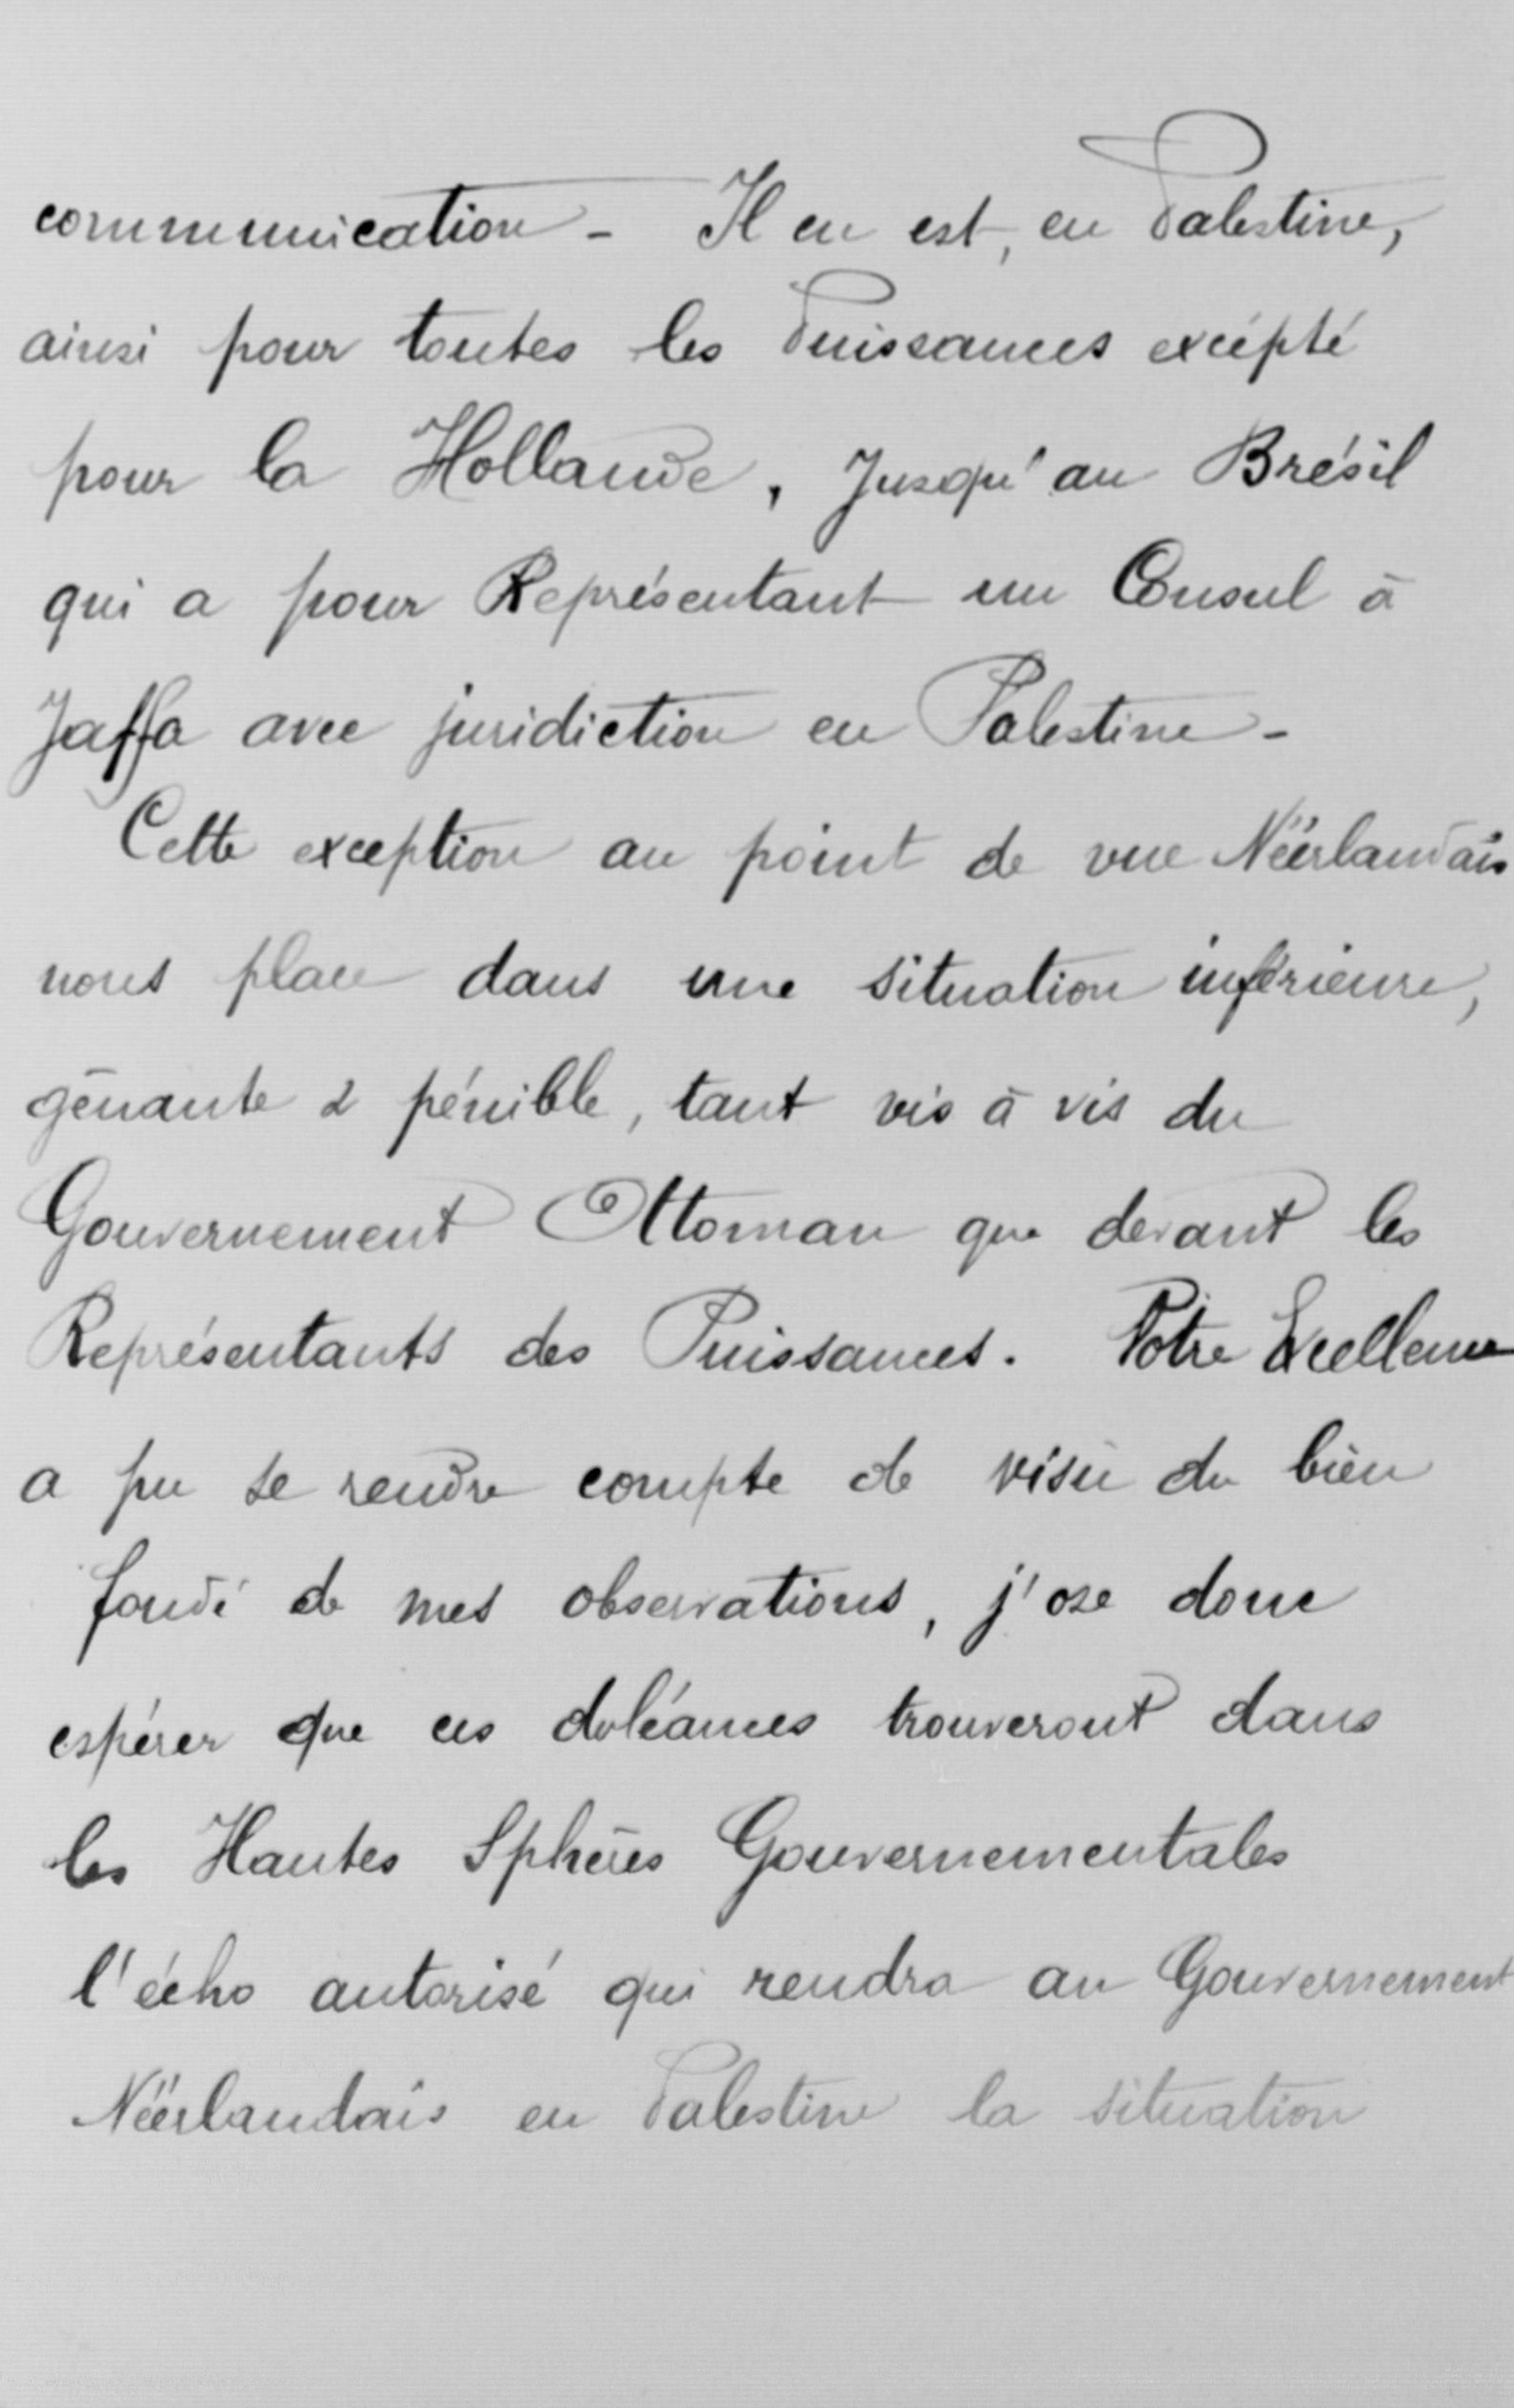 communication - Il en est, en Palestine,
ainsi pour toutes les Puissances excépté
pour la Hollande, Jusqu'au Brésil
qui a pour Représentant un Consul à
Jaffa avec juridiction en Palestine -
Cette exception au point de vue Néerlandais
nous place dans une situation inférieure,
gênante & pénible, tant vis à vis du
Gouvernement Ottoman que devant les
Représentants des Puissances. Votre Excellence
a pu se rendre compte de visu du bien
fondé de mes observations, j'ose donc
espérer que ces doléances trouveront dans
les Hautes Sphères Gouvernementales
l'écho autorisé qui rendra au Gouvernement
Néerlandais en Palestine la situation